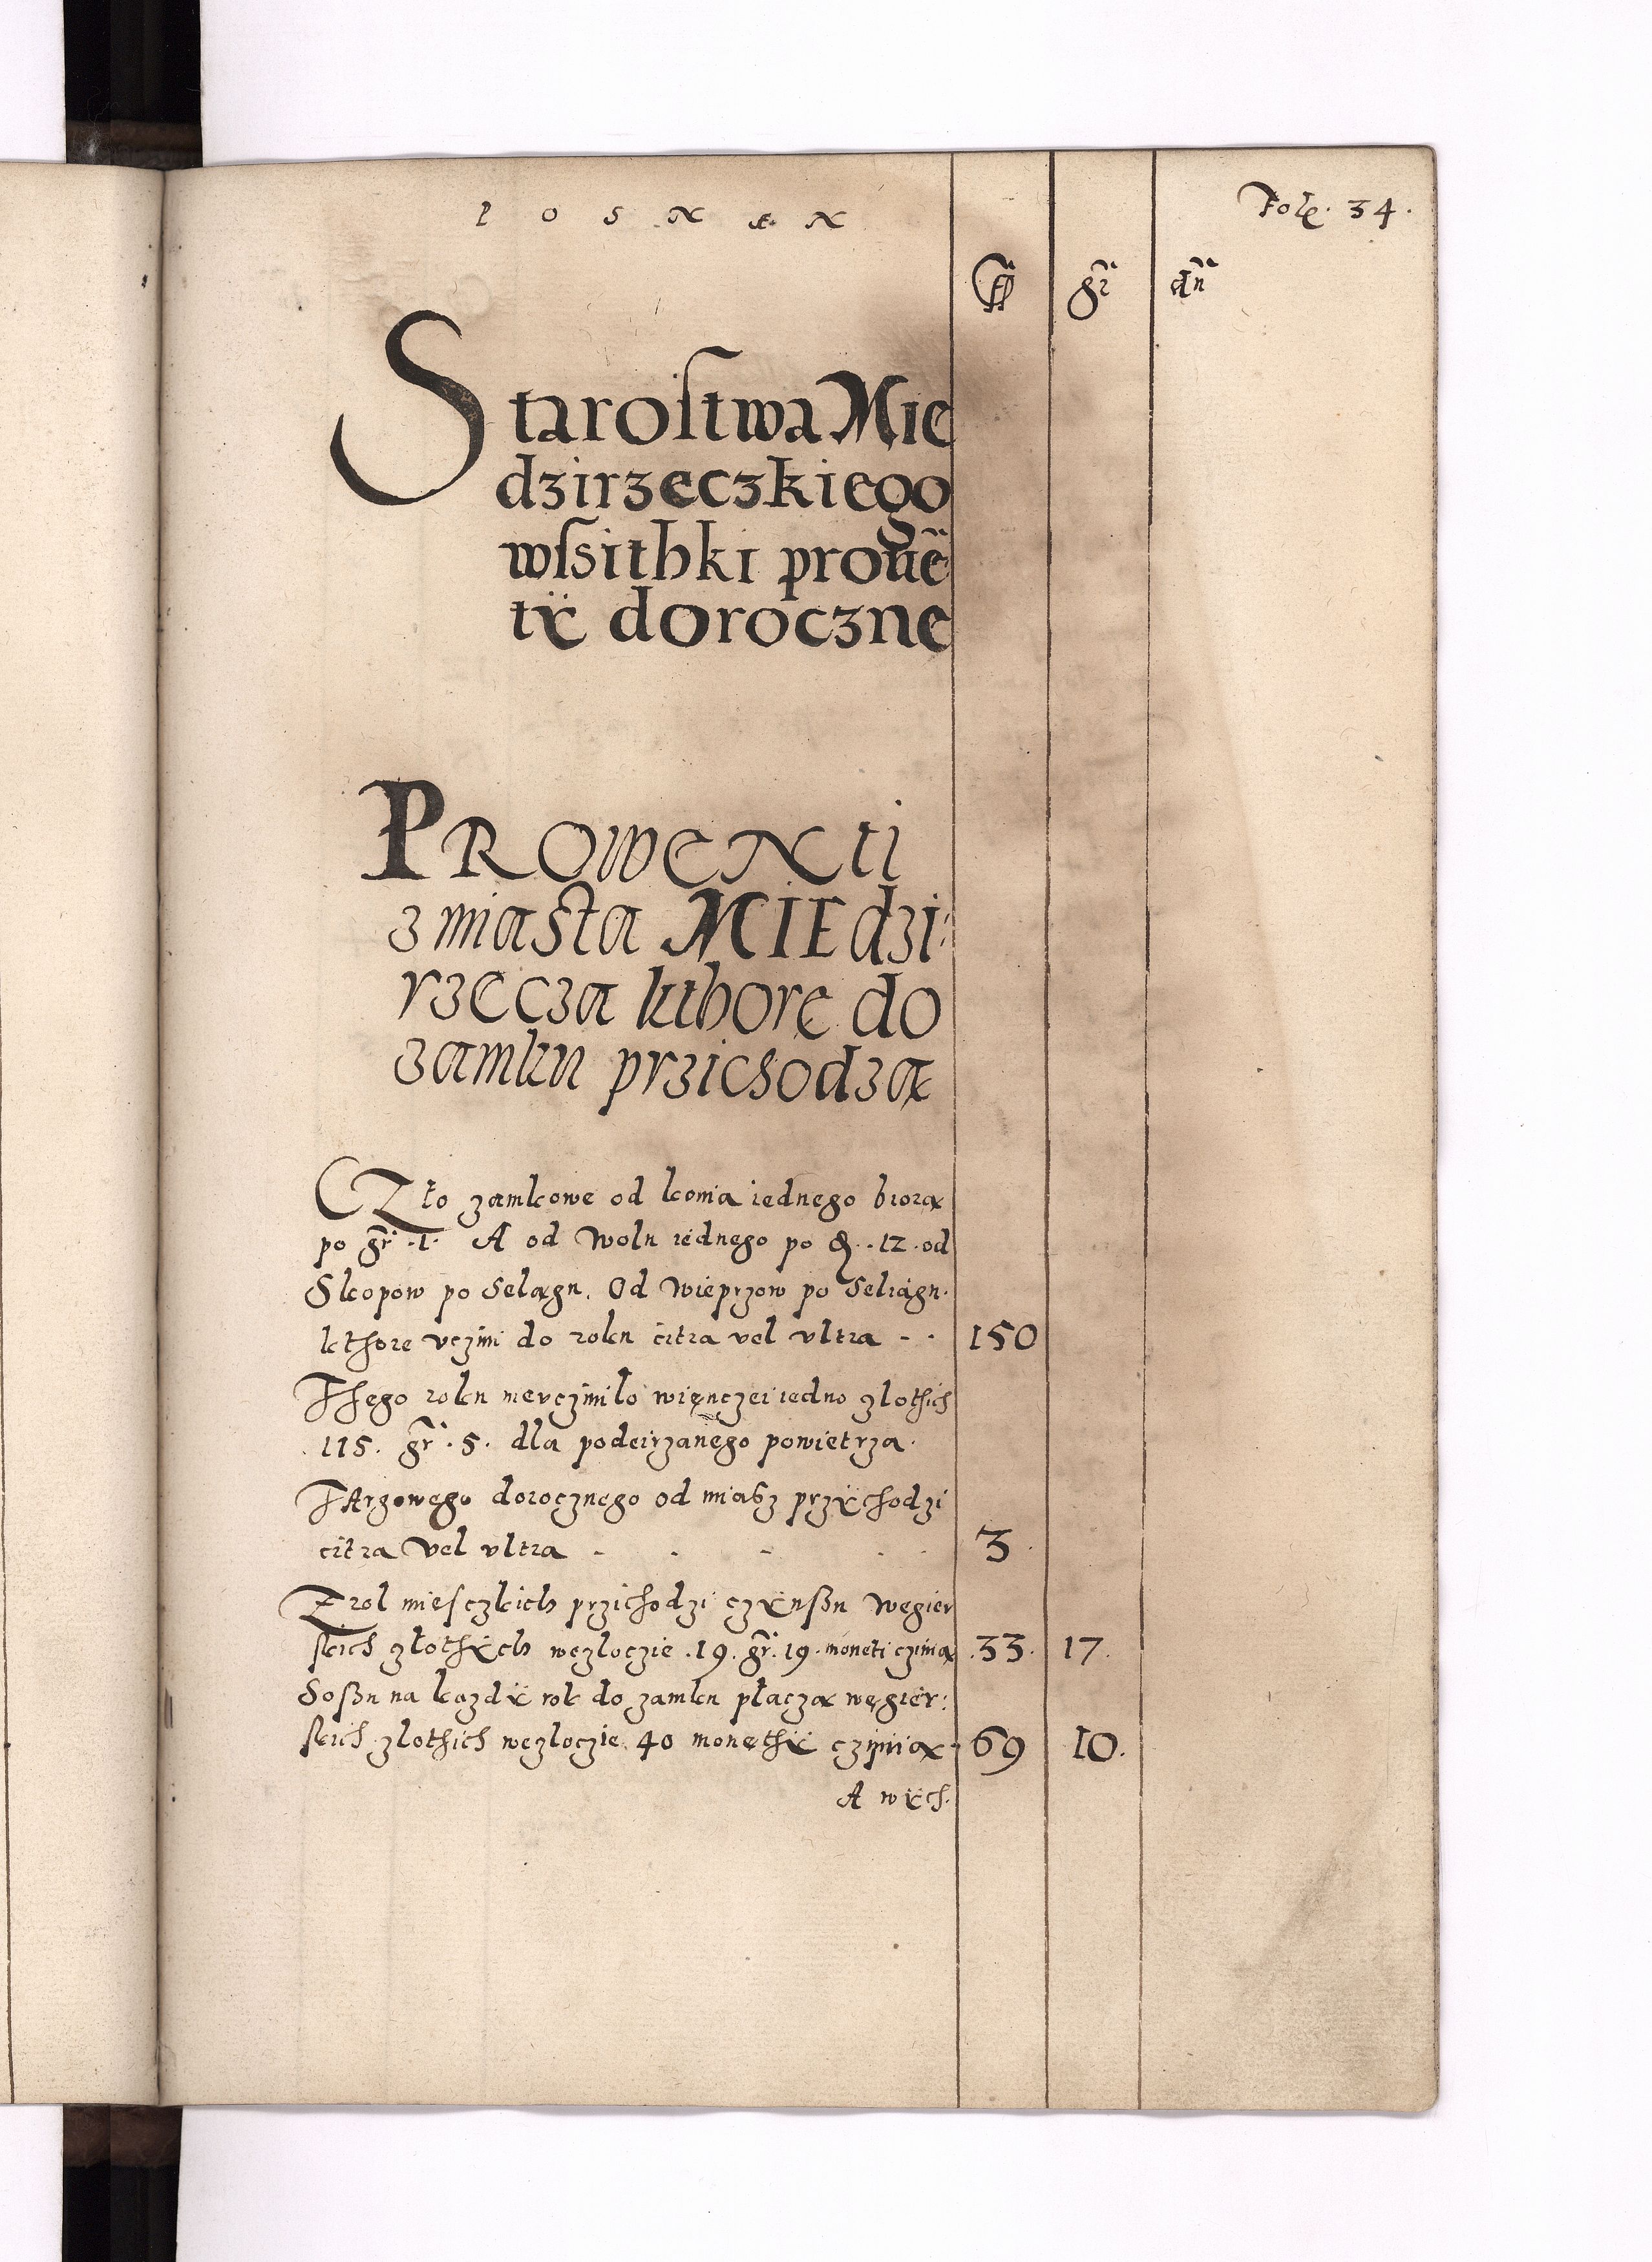 POSNEN
Fole. 34.
fl gr dn
Starostwa Mie
dzirzeczkiego
wssithki prouē
tÿ doroczne
PROWENti
z miasta MIEdzi:
rzecza kthore do
zamku przichodzą
CZło zamkowe od konia iednego biorą
po gr .1. A od Wolu iednego po d. .12. od
Skopow po Selągu. Od Wieprzow po Seliągu.
kthore vczini do roku citra vel vltra - - 150
Thego roku nievczinilo więnczei iedno zlothich
.115. gr .5. dla podeirzanego powietrza.
TArgowego dorocznego od miasz przÿchodzi
citra Vel vltra - - - - - 3.
Z rol miesczkich przichodzi czÿnßu Węgier
skich złothÿch wezloczie .19. gr. 19. moneti czinią .33. 17.
Soßu na kazdÿ rok do zamku płaczą węgier:
skich zlothich wezloczie. 40 monethÿ czinią. 69 10.
A wÿch.